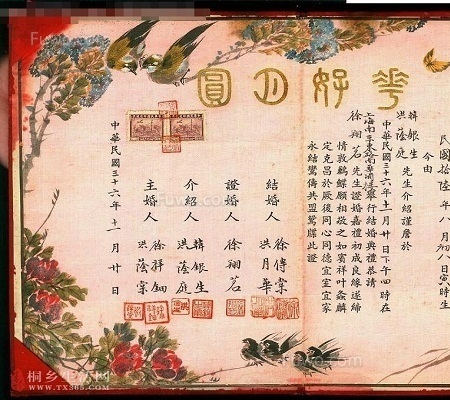 花好月圓
民國拾陸年八月初八日寅時生
今由
韓銀生
洪蔭庭 先生介紹謹詹於
中華民國三十六年十一月廿日下午四時在
上海南京東路 舉行結婚典禮恭請
徐翔茗先生證婚嘉禮初成良緣遂締
情敦鶼鰈願相敬之如賓祥叶螽麟
定克昌於厥後同心同德宜室宜家
永結鸞儔共盟鴛牒此證
結婚人 徐傳棠
洪月華
證婚人 徐翔茗
介紹人 韓銀生
洪蔭庭
主婚人 徐祥鈿
洪蔭棠
中華民國三十六年十一月廿日
桐乡生活网
WWW.TX365.COM